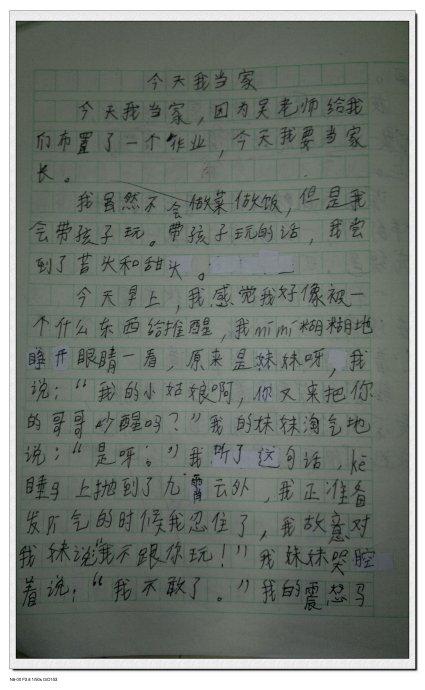 今天我当家
今天我当家，因为吴老师给我
们布置了一个作业，今天我要当家
长。
我虽然不会做菜做饭，但是我
会带孩子玩。带孩子玩的话，我尝
到了苦头和甜头。
今天早上，我感觉我好像被一
个什么东西给推醒，我mīmī糊糊地
睁开眼睛一看，原来是妹妹呀，我
说：“我的小姑娘啊，你又来把你
的哥哥吵醒吗？”我的妹妹淘气地
说：“是呀。”我听了这句话，kē
睡马上抛到了九霄云外，我正准备
发脾气的时候我忍住了，我故意对
我妹说“我不跟你玩！”我妹妹哭腔
着说：“我不敢了。”我的震怒马